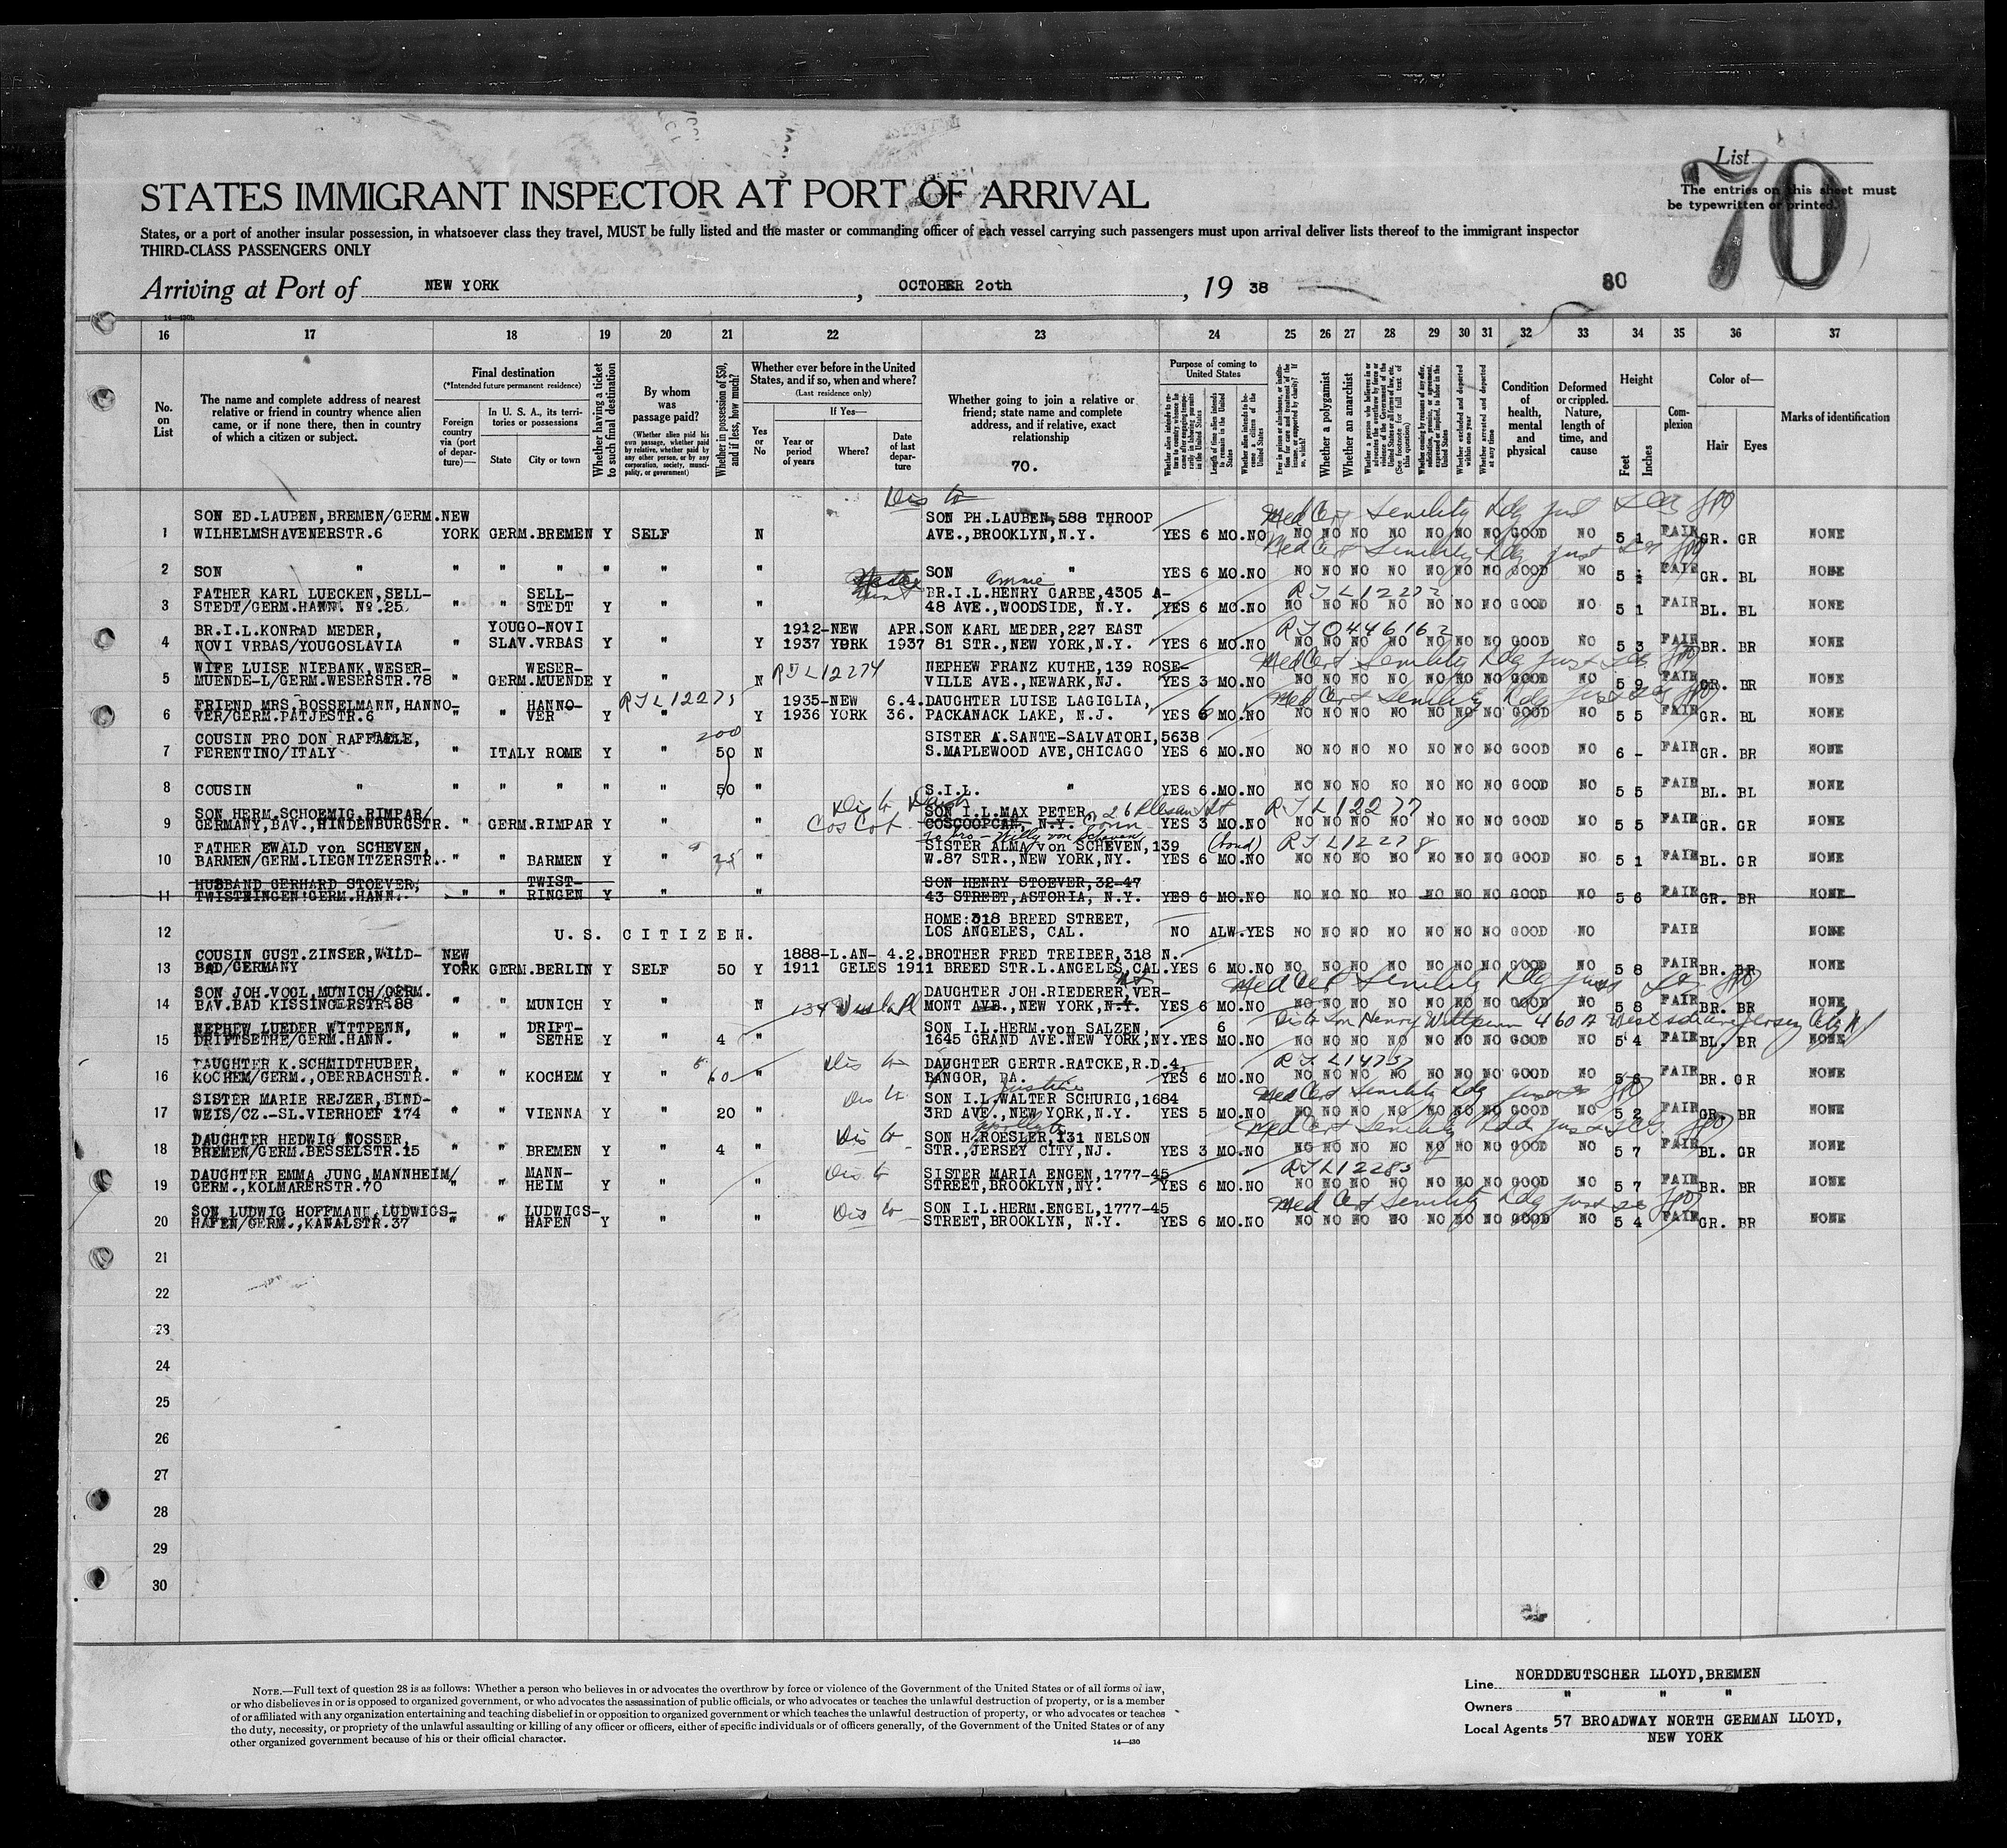 List
70
The entries on this sheet must
be typewritten or printed.
STATES IMMIGRANT INSPECTOR AT PORT OF ARRIVAL
States, or a port of another insular possession, in whatsoever class they travel, MUST be fully listed and the master or commanding officer of each vessel carrying such passengers must upon arrival deliver lists thereof to the immigrant inspector
THIRD-CLASS PASSENGERS ONLY
Arriving at Port of NEW YORK , OCTOBER 2oth , 19 38
80
16 17 18 19 20 21 22 23 24 25 26 27 28 29 30 31 32 33 34 35 36 37
No. on List
The name and complete address of nearest relative or friend in country whence alien came, or if none there, then in country of which a citizen or subject.
Final destination
(*Intended future permanent residence)
Foreign country via (port of departure)—
In U. S. A., its territories or possessions
State
City or town
Whether having a ticket to such final destination
By whom was passage paid?
(Whether alien paid his own passage, whether paid by relative, whether paid by any other person, or by any corporation, society, municipality, or government)
Whether in possession of $50, and if less, how much?
Whether ever before in the United States, and if so, when and where?
(Last residence only)
Yes or No
If Yes—
Year or period of years
Where?
Date of last departure
Whether going to join a relative or friend; state name and complete address, and if relative, exact relationship
70.
Purpose of coming to United States
Length of time alien intends to remain in the United States
Whether alien intends to become a citizen of the United States
Whether a polygamist
Whether an anarchist
Condition of health, mental and physical
Deformed or crippled. Nature, length of time, and cause
Height
Feet
Inches
Complexion
Color of—
Hair
Eyes
Marks of identification
Dis to
Med Cert Senility
SON ED.LAUBEN,BREMEN/GERM. NEW SON PH.LAUBEN,588 THROOP
1 WILHELMSHAVENERSTR.6 YORK GERM.BREMEN Y SELF N AVE.,BROOKLYN,N.Y. YES 6 MO.NO NO NO NO NO NO NO NO GOOD NO 5 1 FAIR GR. GR NONE
Med Cert Senility
2 SON " " " " " " " SON " YES 6 MO.NO NO NO NO NO NO NO NO GOOD NO 5 FAIR GR. BL NONE
FATHER KARL LUECKEN,SELL- SELL- BR.I.L.HENRY GARBE,4305 A-
3 STEDT/GERM.HANN. No.25 " " STEDT Y " " 48 AVE.,WOODSIDE, N.Y. YES 6 MO.NO NO NO NO NO NO NO NO GOOD NO 5 1 FAIR BL. BL NONE
BR.I.L.KONRAD MEDER, YOUGO-NOVI 1912-NEW APR. SON KARL MEDER,227 EAST
4 NOVI VRBAS/YOUGOSLAVIA " SLAV.VRBAS Y " Y 1937 YORK 1937 81 STR.,NEW YORK,N.Y. YES 6 MO.NO NO NO NO NO NO NO NO GOOD NO 5 3 FAIR BR. BR NONE
Med Cert Senility
WIFE LUISE NIEBANK,WESER- WESER- RJL12274 NEPHEW FRANZ KUTHE,139 ROSE-
5 MUENDE-L/GERM.WESERSTR.78 " GERM.MUENDE Y " N VILLE AVE.,NEWARK,NJ. YES 3 MO.NO NO NO NO NO NO NO NO GOOD NO 5 9 FAIR GR. BR NONE
Med Cert Senility
FRIEND MRS.BOSSELMANN,HANNO- HANNO- RJL12275 1935-NEW 6.4. DAUGHTER LUISE LAGIGLIA,
6 VER/GERM.PATJESTR.6 " " VER Y " Y 1936 YORK 36. PACKANACK LAKE, N.J. YES 6 MO.NO NO NO NO NO NO NO NO GOOD NO 5 5 FAIR GR. BL NONE
COUSIN PRO DON RAFFAELE, 200 SISTER A.SANTE-SALVATORI,5638
7 FERENTINO/ITALY " ITALY ROME Y " 50 N S.MAPLEWOOD AVE,CHICAGO YES 6 MO.NO NO NO NO NO NO NO NO GOOD NO 6 - FAIR GR. BR NONE
8 COUSIN " " " " " " 50 " S.I.L. " YES 6.MO.NO NO NO NO NO NO NO NO GOOD NO 5 5 FAIR BL. BL NONE
SON HERM.SCHOEMIG,RIMPAR/ SON I.L.MAX PETER RJL12277
9 GERMANY,BAV.,HINDENBURGSTR. " GERM.RIMPAR Y " " Cos Cob COSCOOPCAF, N.Y. Conn YES 3 MO.NO NO NO NO NO NO NO NO GOOD NO 5 5 FAIR GR. GR NONE
to bro - Willy von Scheven
FATHER EWALD von SCHEVEN, SISTER ALMA von SCHEVEN,139 (bond) RJL12278
10 BARMEN/GERM.LIEGNITZERSTR. " " BARMEN Y " 35 " W.87 STR.,NEW YORK,NY. YES 6 MO.NO NO NO NO NO NO NO NO GOOD NO 5 1 FAIR BL. GR NONE
HUSBAND GERHARD STOEVER, TWIST- SON HENRY STOEVER,32-47
11 TWISTRINGEN/GERM.HANN. " " RINGEN Y " " 43 STREET,ASTORIA, N.Y. YES 6 MO.NO NO NO NO NO NO NO NO GOOD NO 5 6 FAIR GR. BR NONE
HOME:318 BREED STREET,
12 U.S. CITIZEN. LOS ANGELES, CAL. NO ALW.YES NO NO NO NO NO NO NO GOOD NO FAIR NONE
COUSIN GUST.ZINSER,WILD- NEW 1888-L.AN- 4.2. BROTHER FRED TREIBER,318 N.
13 BAD/GERMANY YORK GERM.BERLIN Y SELF 50 Y 1911 GELES 1911 BREED STR.L.ANGELES,CAL. YES 6 MO.NO NO NO NO NO NO NO NO GOOD NO 5 8 FAIR BR. BR NONE
Med Cert Senility
SON JOH.VOGL,MUNICH/GERM. DAUGHTER JOH.RIEDERER,VER-
14 BAV.BAD KISSINGERSTR.88 " " MUNICH Y " N MONT AVE.,NEW YORK,N.Y. YES 6 MO.NO NO NO NO NO NO NO NO GOOD NO 5 8 FAIR BR. BR NONE
Dis to Son Henry Wittpenn
NEPHEW LUEDER WITTPENN, DRIFT- SON I.L.HERM.von SALZEN, 6
15 DRIFTSETHE/GERM.HANN. " " SETHE Y " 4 " 1645 GRAND AVE.NEW YORK,NY. YES MO.NO NO NO NO NO NO NO NO GOOD NO 5 4 FAIR BL. BR NONE
DAUGHTER K.SCHMIDTHUBER, Dis to DAUGHTER GERTR.RATCKE,R.D.4,
16 KOCHEM/GERM.,OBERBACHSTR. " " KOCHEM Y " 60 " BANGOR, PA. YES 6 MO.NO NO NO NO NO NO NO NO GOOD NO 5 6 FAIR BR. GR NONE
Med Cert Senility
SISTER MARIE REJZER,BIND- Dis to SON I.L.WALTER SCHURIG,1684
17 WEIS/CZ.-SL.VIERHOEF 174 " " VIENNA Y " 20 " 3RD AVE.,NEW YORK,N.Y. YES 5 MO.NO NO NO NO NO NO NO NO GOOD NO 5 2 FAIR GR. BR NONE
Med Cert Senility
DAUGHTER HEDWIG NOSSER, Dis to SON H.ROESLER,131 NELSON
18 BREMEN/GERM.BESSELSTR.15 " " BREMEN Y " 4 " STR.,JERSEY CITY,NJ. YES 3 MO.NO NO NO NO NO NO NO NO GOOD NO 5 7 FAIR BL. GR NONE
DAUGHTER EMMA JUNG,MANNHEIM/ MANN- Dis to SISTER MARIA ENGEN,1777-45
19 GERM.,KOLMARERSTR.70 " " HEIM Y " " STREET,BROOKLYN,NY. YES 6 MO.NO NO NO NO NO NO NO NO GOOD NO 5 7 FAIR BR. BR NONE
Med Cert Senility
SON LUDWIG HOFFMANN,LUDWIGS- LUDWIGS- Dis to SON I.L.HERM.ENGEL,1777-45
20 HAFEN/GERM.,KANALSTR.37 " " HAFEN Y " " STREET,BROOKLYN, N.Y. YES 6 MO.NO NO NO NO NO NO NO NO GOOD NO 5 4 FAIR GR. BR NONE
21
22
23
24
25
26
27
28
29
30
NOTE.—Full text of question 28 is as follows: Whether a person who believes in or advocates the overthrow by force or violence of the Government of the United States or of all forms of law,
or who disbelieves in or is opposed to organized government, or who advocates the assassination of public officials, or who advocates or teaches the unlawful destruction of property, or is a member
of or affiliated with any organization entertaining and teaching disbelief in or opposition to organized government or which teaches the unlawful destruction of property, or who advocates or teaches
the duty, necessity, or propriety of the unlawful assaulting or killing of any officer or officers, either of specific individuals or of officers generally, of the Government of the United States or of any
other organized government because of his or their official character.
14—430
Line NORDDEUTSCHER LLOYD,BREMEN
Owners " " "
Local Agents 57 BROADWAY NORTH GERMAN LLOYD,
NEW YORK